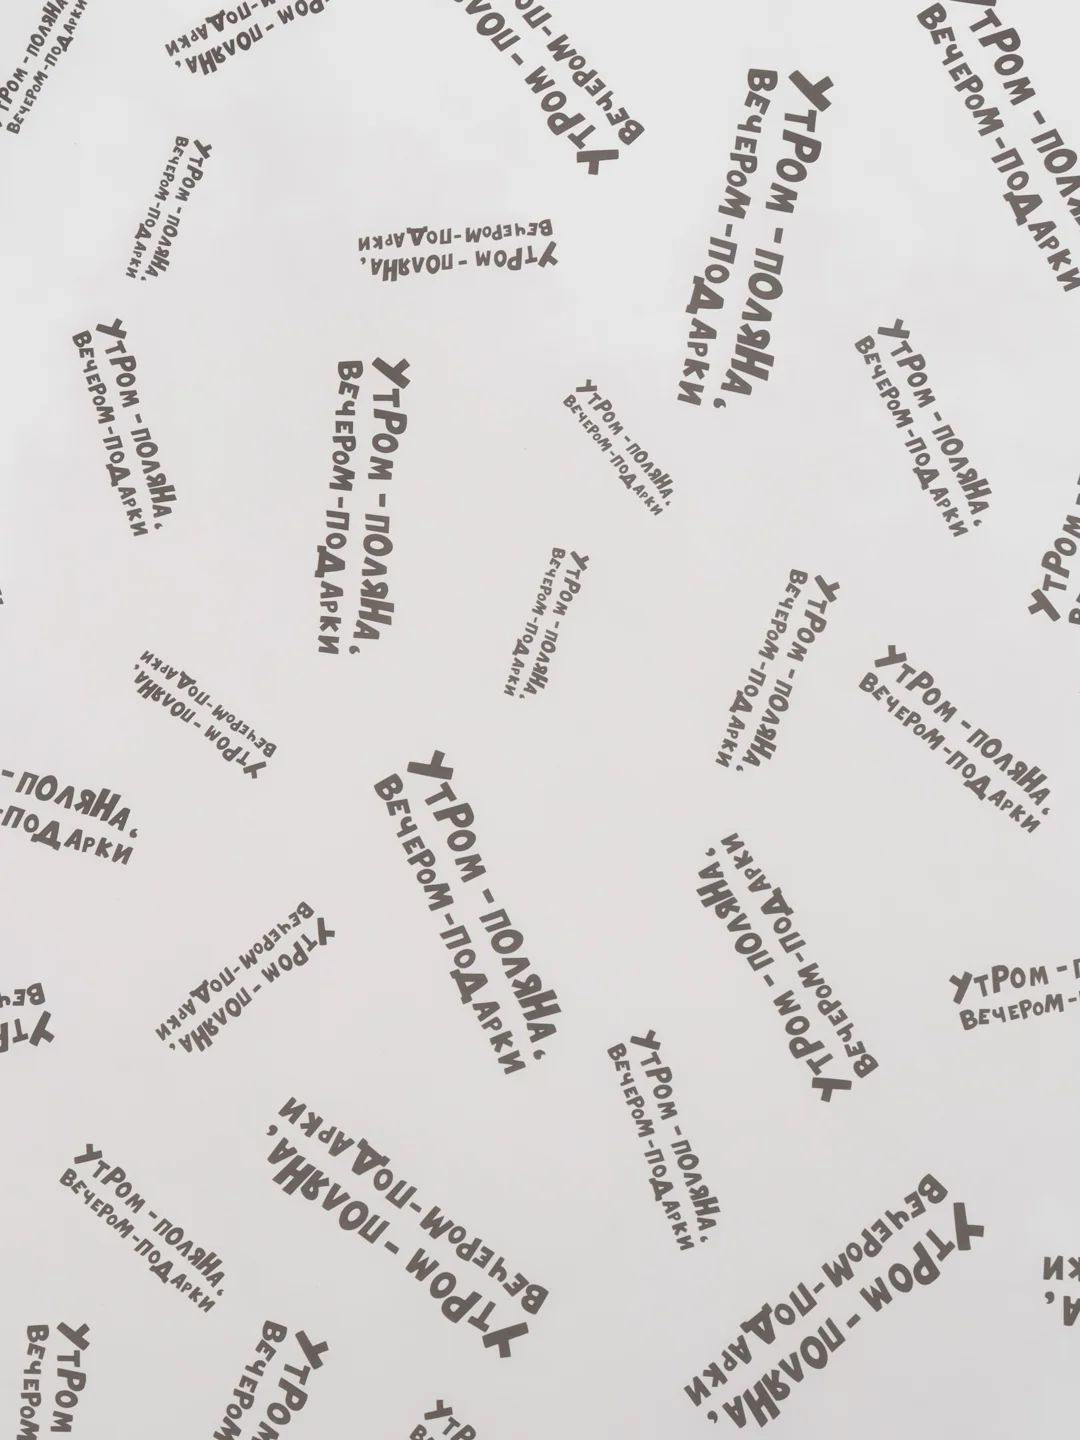 Утром - поляна,
Вечером-подарки
Утром - поляна,
Вечером-подарки
Утром - поля
Вечером-по
Утром - поляна,
Вечером-подарки
Утром - поля
Вечером-подарки
Утром - поляна,
Вечером-подарки
Утром - поляна,
Вечером-подарки
Утром - поляна,
Вечером-подарки
Утром - поляна,
Вечером-подарки
Утром - поляна,
Вечером-подарки
Утром - поляна,
Вечером-подарки
Утром - поляна,
Вечером-подарки
Утром
Утром - поляна,
Вечером-подарки
Утром - поляна,
Вечером-подарки
Утром - поляна,
Вечером-подарки
Утром - поляна,
Вечером-подарки
- поляна,
-подарки
Утром - поляна,
Вечером-подарки
Утром - поляна,
Вечером-подарки
Утром - поляна,
Вечером-подарки
Утром - п
Вечером-
Утр
Вече
Утром - поляна,
Вечером-подарки
Утром - поляна,
Вечером-подарки
Утром - поляна,
Вечером-подарки
Утром - поляна,
Вечером-подарки
а,
ки
Утром
Вечером
Утром
Вечером
Утр